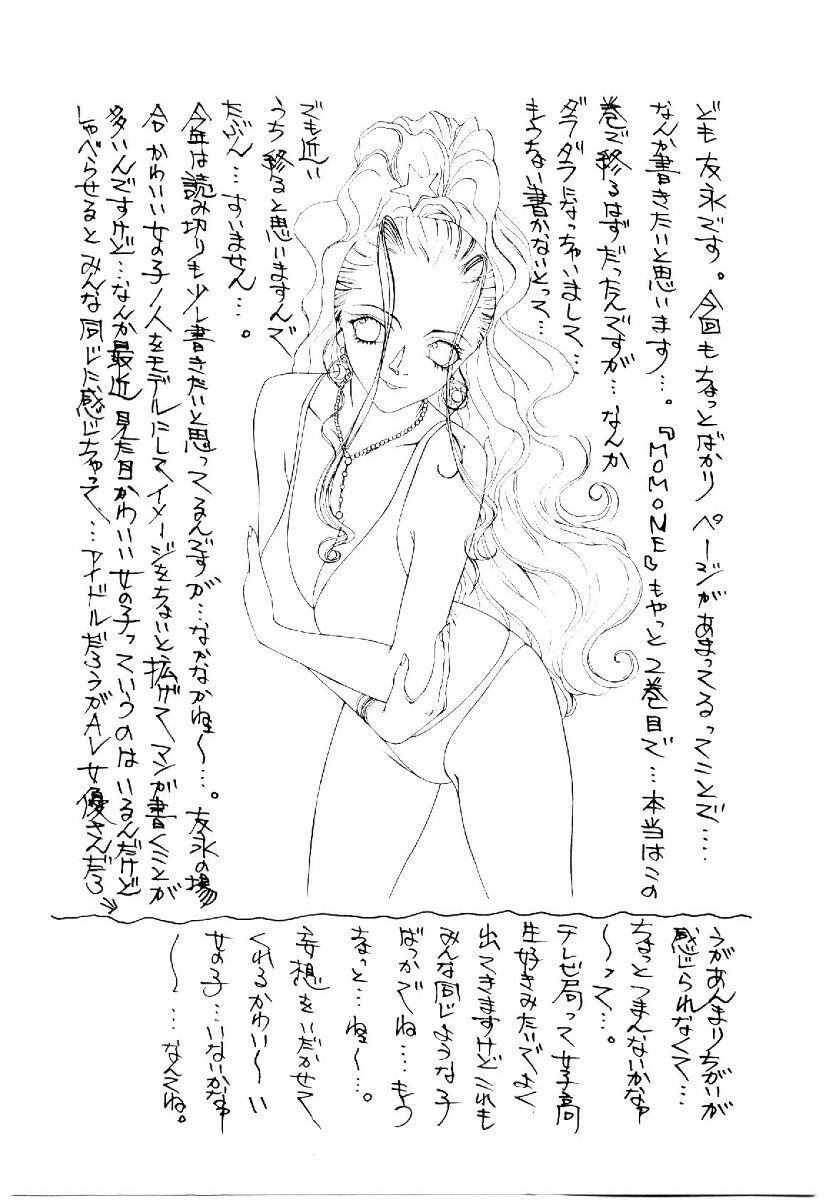 ども友永です。今回もちょっとばかりページがあまってるってことで…
なんか書きたいと思います…。『MOMONE』もやっと2巻目で…本当はこの
巻で終るはずだったんですが…なんか
ダラダラになっちゃいまして…
もうちょい書かないとって…
でも近い
うち終ると思いますんで
たぶん…すいません…。
今年は読み切りも少し書きたいと思ってるんですが…なかなかね〜…。友永の場
合かわいい女の子1人をモデルにしてイメージをちょいと拡げてマンガ書くことが
多いんですけど…なんか最近見た目かわいい女の子っていうのはいるんだけど
しゃべらせるとみんな同じに感じちゃって…アイドルだろうがAV女優さんだろ
うがあんまりちがいが
感じられなくて…
ちょっとつまんないかなァ
〜って…。
テレビ局って女子高
生好きみたいでよく
出てきますけどこれも
みんな同じような子
ばっかでね…もう
ちょっと…ね〜…。
妄想をいだかせて
くれるかわい〜い
女の子…いないかなァ
〜…なんてね。